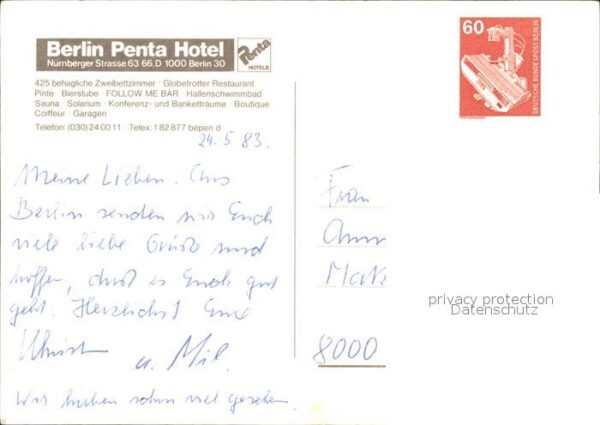 Berlin Penta Hotel
Nürnberger Strasse 63 66.D 1000 Berlin 30
Penta
HOTELS
425 behagliche Zweibettzimmer · Globetrotter Restaurant
Pinte Bierstube FOLLOW ME BAR Hallenschwimmbad
Sauna Solarium Konferenz- und Banketträume Boutique
Coiffeur Garagen
Telefon: (030) 24 00 11 · Telex: 1 82 877 bepen d
60
DEUTSCHE BUNDESPOST BERLIN
24.5.83.
Meine Lieben. Aus
Berlin senden wir Euch
viele liebe Grüße und
hoffen, daß es Euch gut
geht. Herzlichst Eure
u.
Wir haben schon viel gesehen.
Frau
8000
privacy protection
Datenschutz